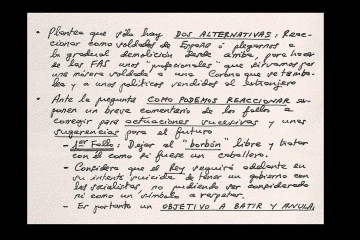 • Plantea que sólo hay DOS ALTERNATIVAS: Reac-
cionar como soldados de España ó plegarnos a
la gradual demolición desde arriba, para hacer
de las FAS unos "profesionales" que sirvamos por
una mísera soldada a una Corona que se tamba-
lea y a unos políticos vendidos al extranjero
• Ante la pregunta COMO PODEMOS REACCIONAR se
ponen un breve comentario de los fallos a
corregir para actuaciones sucesivas y unas
sugerencias para el futuro
- 1er Fallo: Dejar al "borbón" libre y tratar
con él como si fuese un caballero.
- Considera que el Rey seguirá adelante en
su intento suicida de tener un gobierno con
los socialistas, no pudiendo ser considerado
ni como un símbolo a respetar.
- Es por tanto un OBJETIVO A BATIR Y ANULAR.